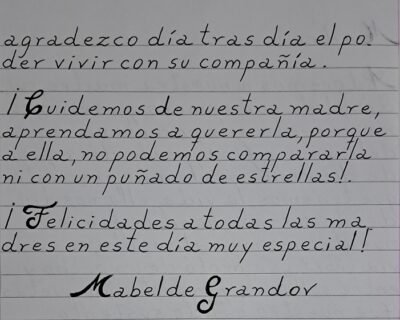 agradezco día tras día el po-
der vivir con su compañía.
¡Cuidemos de nuestra madre,
aprendamos a quererla, porque
a ella, no podemos compararla
ni con un puñado de estrellas!.
¡Felicidades a todas las ma-
dres en este día muy especial!
Mabel de Grandov